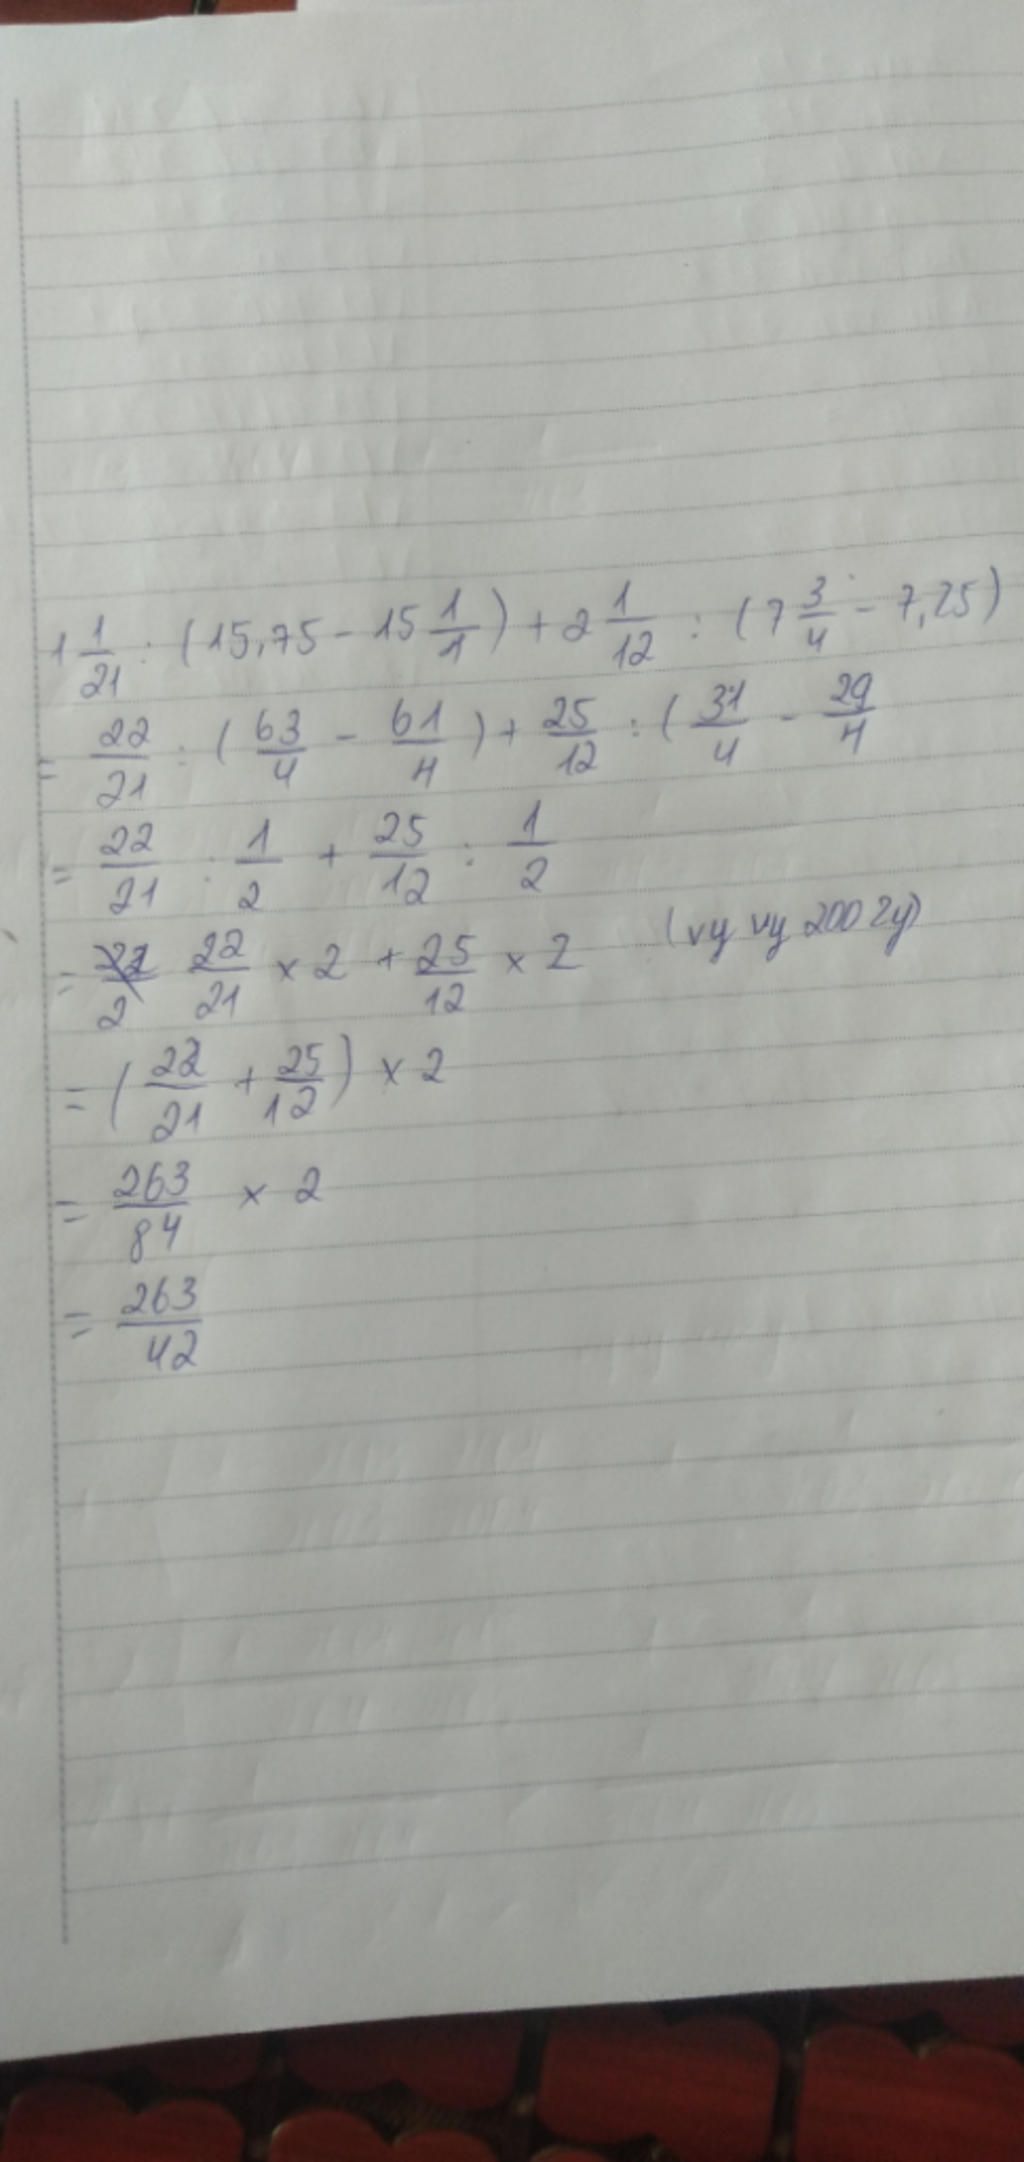 1 1/21 : (15,75 - 15 1/4) + 2 1/12 : (7 3/4 - 7,25)
= 22/21 : (63/4 - 61/4) + 25/12 : (31/4 - 29/4
= 22/21 : 1/2 + 25/12 : 1/2
= 22/21 × 2 + 25/12 × 2 (vy vy 200 2y)
= (22/21 + 25/12) × 2
= 263/84 × 2
= 263/42